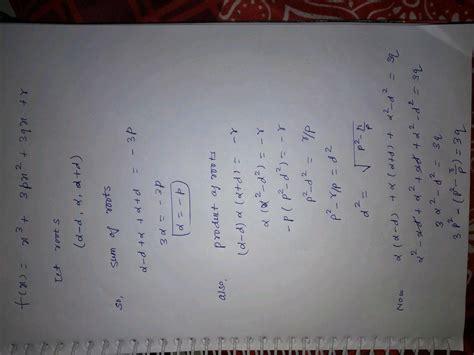 f(x) = x³ + 3px² + 3qx + r
Let roots
(α-d, α, α+d)
So, sum of roots
α-d + α + α+d = -3p
3α = -3p
α = -p
also, product of roots
(α-d) α (α+d) = -r
α (α²-d²) = -r
-p (p²-d²) = -r
p²-d² = r/p
p² - r/p = d²
d² = √p² - r/p
Now α(α-d) + α(α+d) + α²-d² = 3q
α² - αd + α² + αd + α² - d² = 3q
3α² - d² = 3q
3p² - (p² - r/p) = 3q